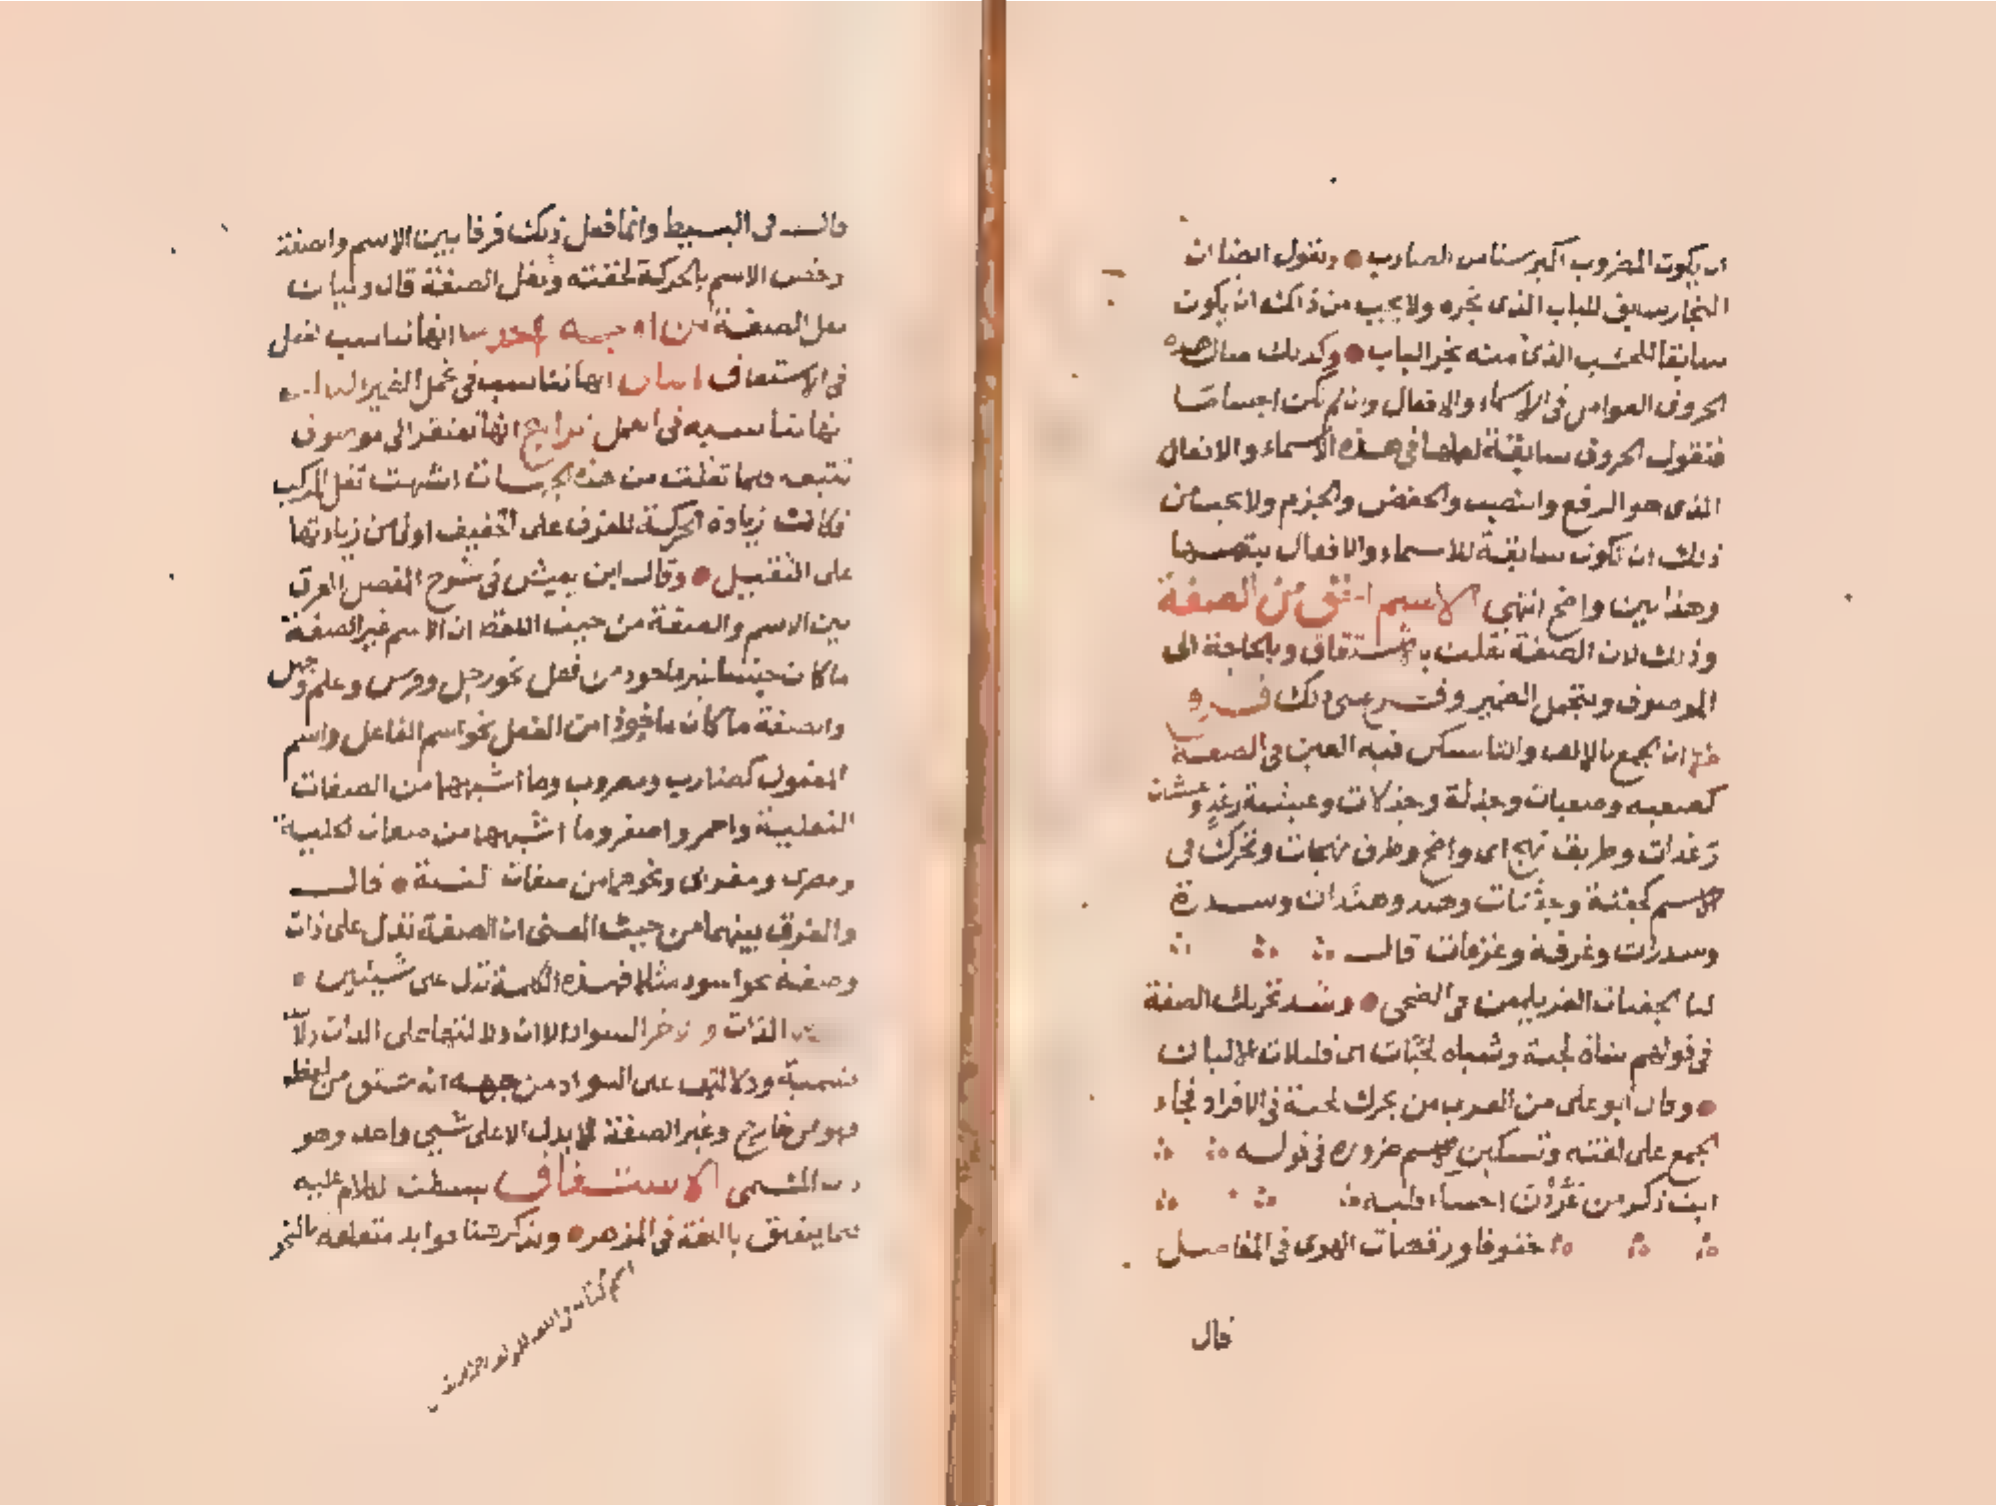 ان يكون المضروب اكبر سنا من الضارب وتقول ايضا ان
النجار سابق للباب الذى نجره ولا يجب من ذلك ان يكون
سابقا للخشب الذى منه نجر الباب وكذلك مثال هذه
الحروف العوامل فى الاسماء والافعال وان لم تكن اجساما
فنقول الحروف سابقة لعملها فى هذه الاسماء والافعال
الذى هو الرفع والنصب والخفض والجزم ولا يجب من
ذلك ان تكون سابقة للاسماء والافعال بنفسها
وهذا بين واضح انتهى الاسم اخف من الصفة
وذلك لان الصفة ثقلت بالاشتقاق وبالحاجة الى
الموصوف وبتحمل الضمير وفرع على ذلك فروع
منها ان يجمع بالالف والتا سكن فيه العين فى الصفة
كصعبه وصعبات وجذلة وجذلات وعيشة رغد وعيشات
رغدات وطريف نهج اى واضح وطرف نهجات وتحرك فى
الاسم كجفنة وجفنات وهند وهندات وسدرة
وسدرات وغرفة وغرفات قال
لنا الجفنات الغر يلمعن فى الضحى وشذ تحريك الصفة
فى قولهم شاة لجبة وشياه لجبات اى قليلات الالبان
وقال ابو على من العرب من يحرك لجبة فى الافراد فجاء
الجمع على لغته وتسكين الاسم ضرورة فى قوله
ابت ذكر من عَوَّدْنَ احشاء قلبه
خفوقا ورفضات الهوى فى المفاصل
قال
قال فى البسيط وانما فعل ذلك فرقا بين الاسم والصفة
وخص الاسم بالحركة لخفته وثقل الصفة قال وبيان
ثقل الصفة من اوجه احدها انها تناسب الفعل
فى الاشتقاق الثانى انها تناسب فى تحمل الضمير الثالث
انها تناسبه فى العمل الرابع انها تفتقر الى موصوف
تتبعه فلما ثقلت من هذه الجهات اشبهت ثقل المركب
فكانت زيادة الحركة للفرق على الخفيف اولى من زيادتها
على الثقيل وقال ابن يعيش فى شرح المفصل الفرق
بين الاسم والصفة من حيث اللفظ ان الاسم غير الصفة
ما كان جنسا غير ماخوذ من فعل نحو رجل وفرس وعلم وجهل
والصفة ما كان ماخوذا من الفعل نحو اسم الفاعل واسم
المفعول كضارب ومضروب وما اشبهها من الصفات
الفعلية واحمر واصفر وما اشبهها من صفات الحلية
ومصرى ومغربى ونحوهما من صفات النسبة قال
والفرق بينهما من حيث المعنى ان الصفة تدل على ذات
وصفة نحو اسود مثلا فهذه الكلمة تدل على شيئين
الذات والاخر السواد الا ان دلالتها على الذات دلالة
تسمية ودلالتها على السواد من جهة انه مشتق من لفظه
فهو من خارج وغير الصفة لا يدل الا على شيى واحد وهو
ذات المسمى الاشتقاق بسطت الكلام عليه
فيما يتعلق باللغة فى المزهر ونذكر هنا فوايد متعلقه بالنحو